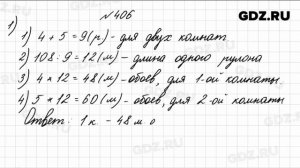 GDZ.RU
№406
1)
1) 4 + 5 = 9 (р) - для двух комнат
2) 108 : 9 = 12 (м) - длина одного рулона
3) 4 × 12 = 48 (м) - обоев, для 1-ой комнаты.
4) 5 × 12 = 60 (м) - обоев, для 2-ой комнаты
Ответ: 1 к. - 48 м о